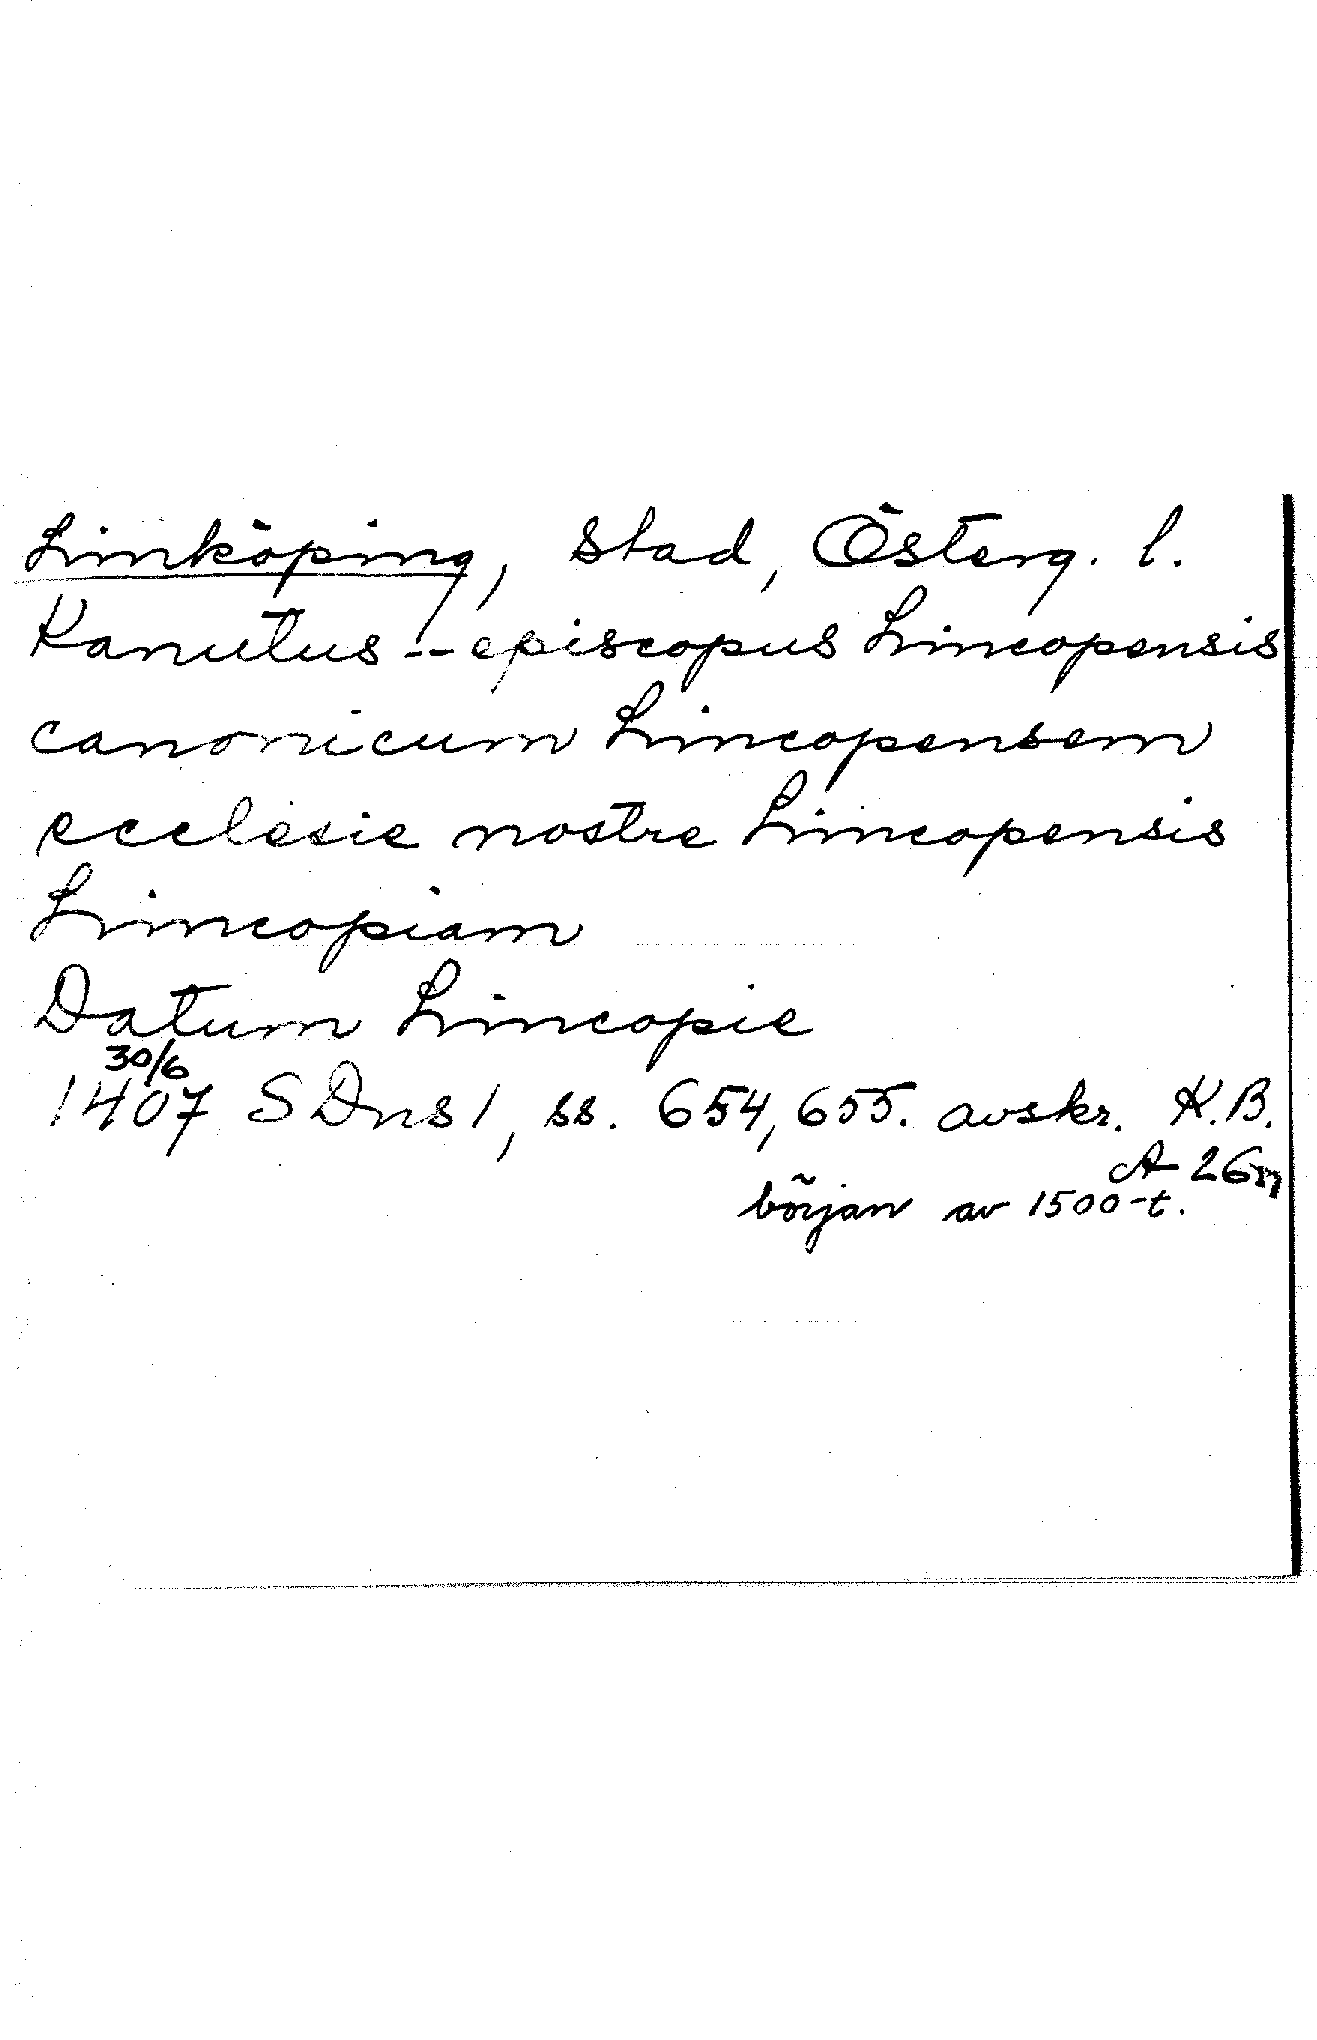 Linköping, stad, Österg. l.
Kanutus -- episcopus Lincopensis
canonicum Lincopensem
ecclesie nostre Lincopensis
Lincopiam
Datum Lincopie
30/6
1407 SDns 1, ss. 654, 655. avskr. K.B.
A 26m
början av 1500-t.